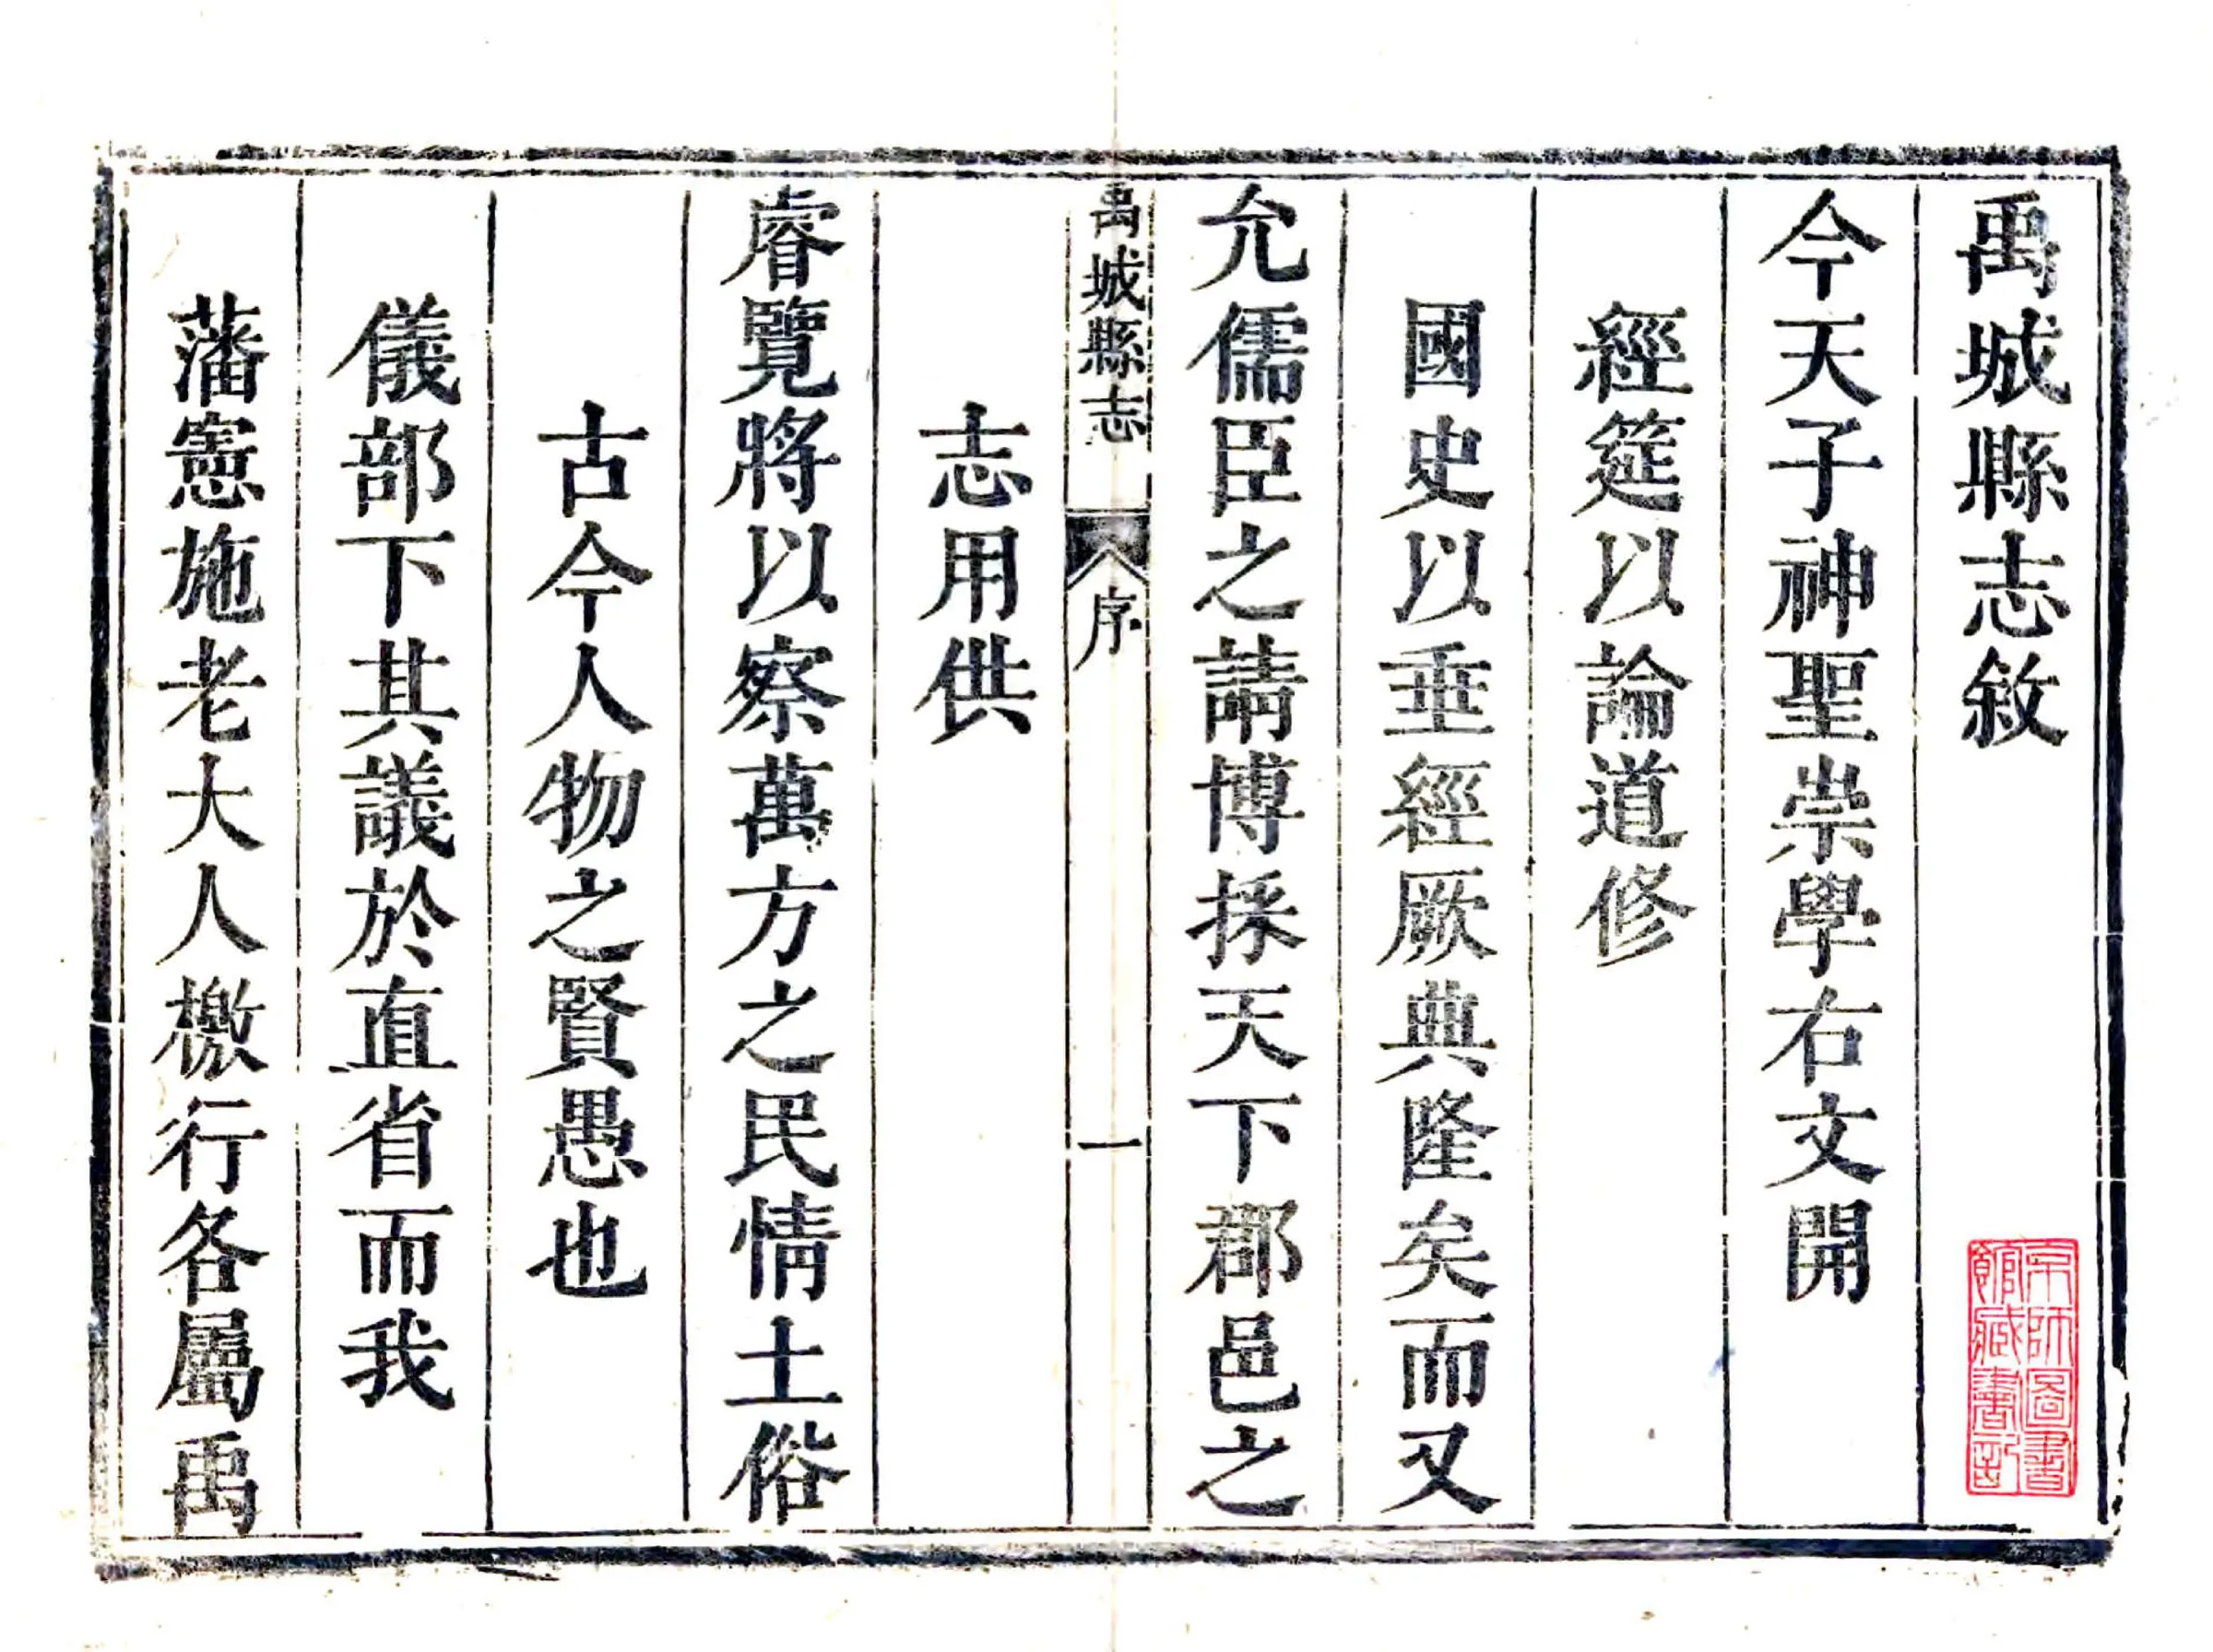 禹城縣志敘
今天子神聖崇學右文開
經筵以論道修
國史以垂經厥典隆矣而又
允儒臣之請博採天下郡邑之
禹城縣志
序
一
志用供
睿覽將以察萬方之民情土俗
古今人物之賢愚也
儀部下其議於直省而我
藩憲施老大人檄行各屬禹
京師圖書
館藏書記